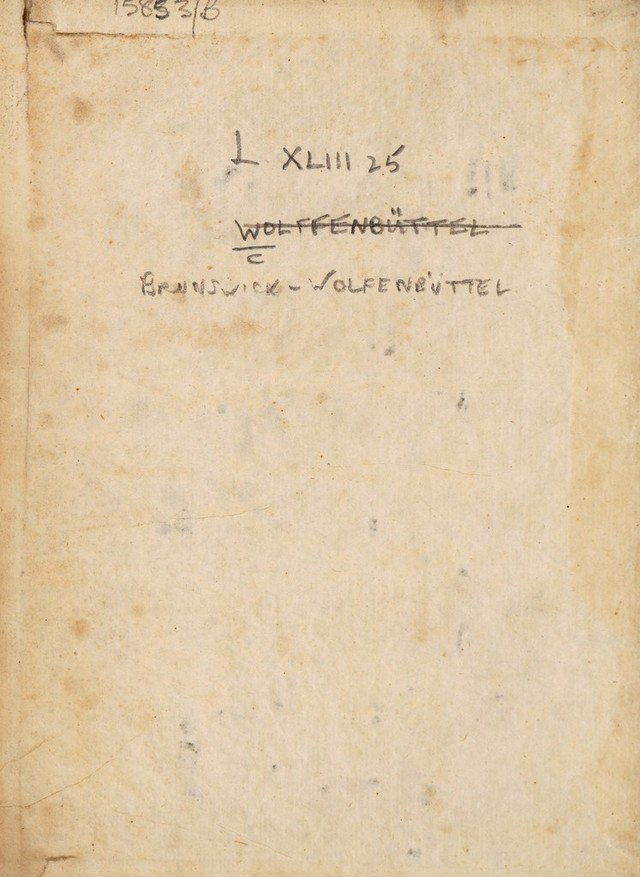 15853/B
L XLIII 25
WOLFFENBÜTTEL
C
BRUNSWICK - WOLFENBÜTTEL